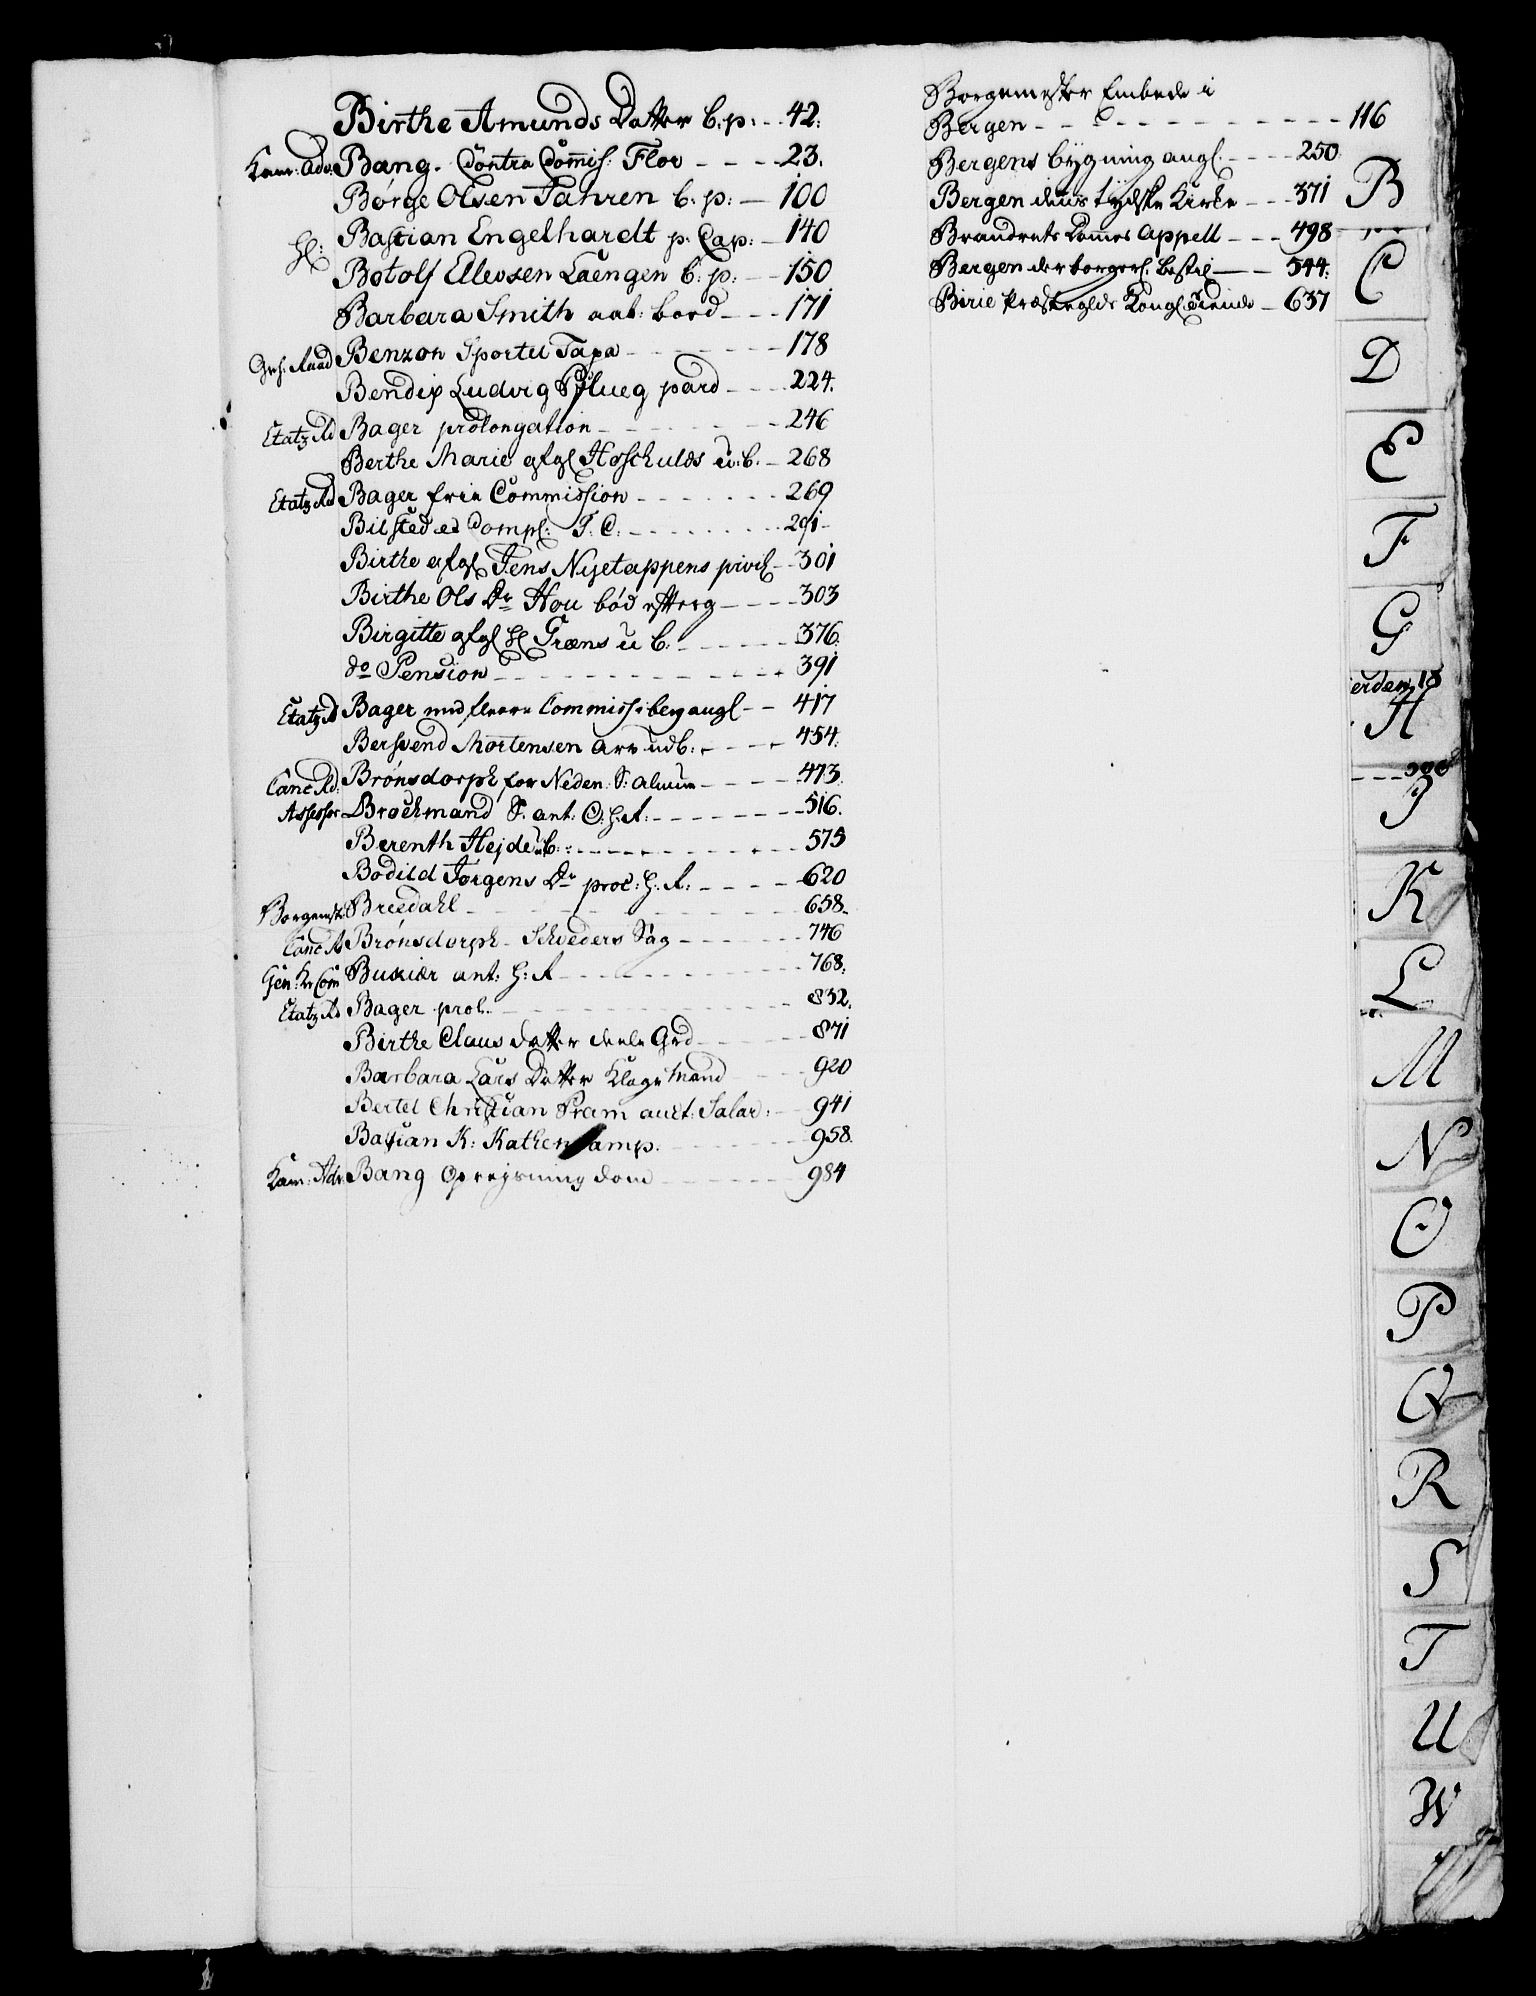 Birthe Amunds Datter b: p: - - 42:
Kam: Adv: Bang. Contra Commis: Flor - - - 23.
Børge Olsen Fahren b: p: - 100
Sl: Bastian Engelhardt p. Cap: - 140
Botolf Ellevsen Laengen b: p: - - 150
Barbara Smith aab: bord - - - 171
Raad Benzon Sportel Taxa - - - - - - 178
Bendix Ludvig Pflueg pard - - - 224.
Etatz Rd Bager prolongation - - - - - - - 246
Berthe Marie afgl Hoschulds u: b. - 268
Etatz Rd Bager frie Commission - - - - - - 269
Bilsted ed Compl: T. C: - - - - - - 291 -
Birthe afgl Jens Nyetappens privil - - 301
Birthe Ols Dr Hou bød efterg - - - - 303
Birgitte afgl Sl Træns u b. - - - - - - 376.
do Pension - - - - - - - - - - - 391
Etatz Rd Bager med fleere Commiss: beg angl - - 417
Bersvend Mortensen Arv udb: - - - - 454.
Canc Rd: Brönsdorph for Neden: S: - - - - 473.
Assessor Brochmand S. ant: O. H. R: - - - - - - - 516.
Berenth Hejde ub: - - - - - - - - - 575
Bodild Jørgens Dr proc: H. R: - - - - 620
Borgemst: Breedahl - - - - - - - - - - 658.
Canc R Brönsdorph - Schveders Sag - - - - - - 746
Gen: Kr Com Buxiær ant: H: R - - - - - - - - - 768.
Etatz Rd Bager prol. - - - - - - - - - - - 832.
Birthe Claus datter deele Grd - - - - - 871
Barbara Lars Datter Klage Mand - - - 920
Bertel Christian Pram auct: Salar: - 941
Bastian K: Kathencamp. - - - - - - 958.
Kam: Adv: Bang Oprejsning dom - - - - - - 984
Borgemester Embede i
Bergen - - - - - - - - - - - - 116
Bergens bygning angl. - - - - 250
Bergen dens tydske Kirke - - - 371
Brandrets Dommes Appell - - - 498
Bergen der borgerl. bestil - - - 544.
Birie Præstegilds Kongl: Tiende - 637
B
C
D
E
F
G
erden 18
H
I
K
L
M
N
O
P
Q
R
S
T
U
W